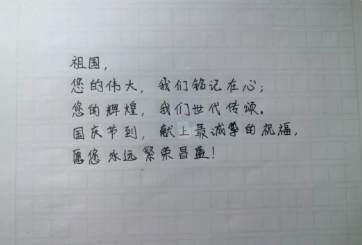 祖国，
您的伟大，我们铭记在心；
您的辉煌，我们世代传颂。
国庆节到，献上最诚挚的祝福，
愿您永远繁荣昌盛！